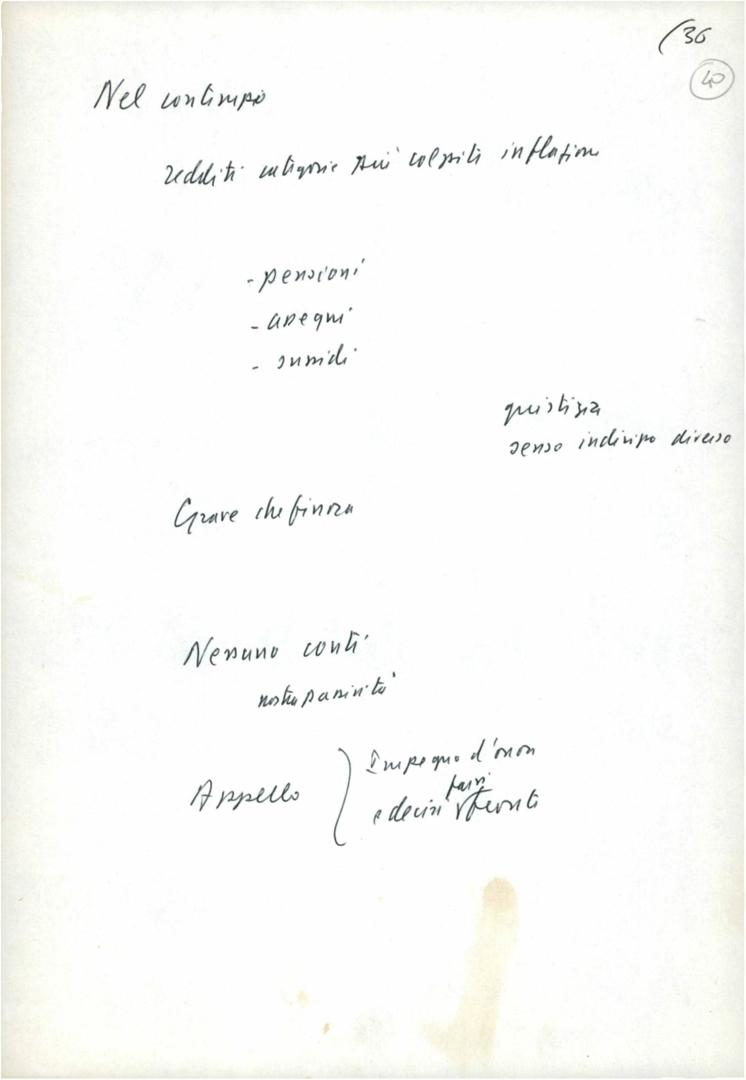 (36
40
Nel contempo
redditi categorie più colpiti inflazione
- pensioni
- assegni
- sussidi
giustizia
senso indirizzo diverso
Grave che finora
Nessuno conti
nostra passività
Appello
Impegno d'onon
farvi
e decisi fronti